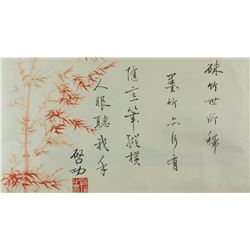 硃竹世所稀
墨竹亦何有
随意筆縱横
人眼聽我手
啓功